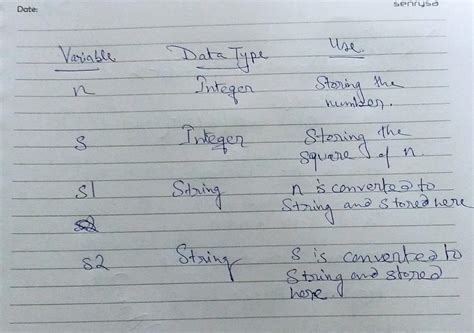 Date:
senrysa
Variable Data Type Use.
n Integer Storing the
number.
s Integer Storing the
square of n.
s1 String n is converted to
String and stored here
s2
s2 String s is converted to
String and stored
here.